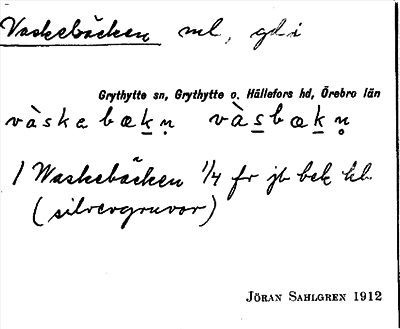 Vaskebäcken ml, gd i
Grythytte sn, Grythytte o. Hällefors hd, Örebro län
vàskebækn vàsbækn
1 Waskebäcken 1/4 fr jb bek kb
(silvergruvor)
JÖRAN SAHLGREN 1912